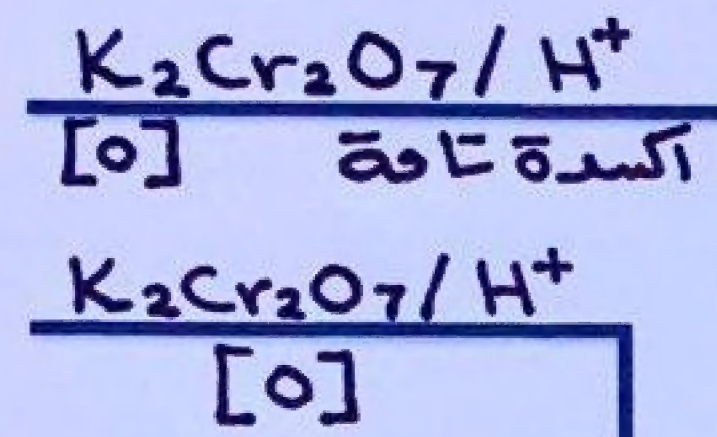 K₂Cr₂O₇ / H⁺
[O] اكسدة تامة
K₂Cr₂O₇ / H⁺
[O]